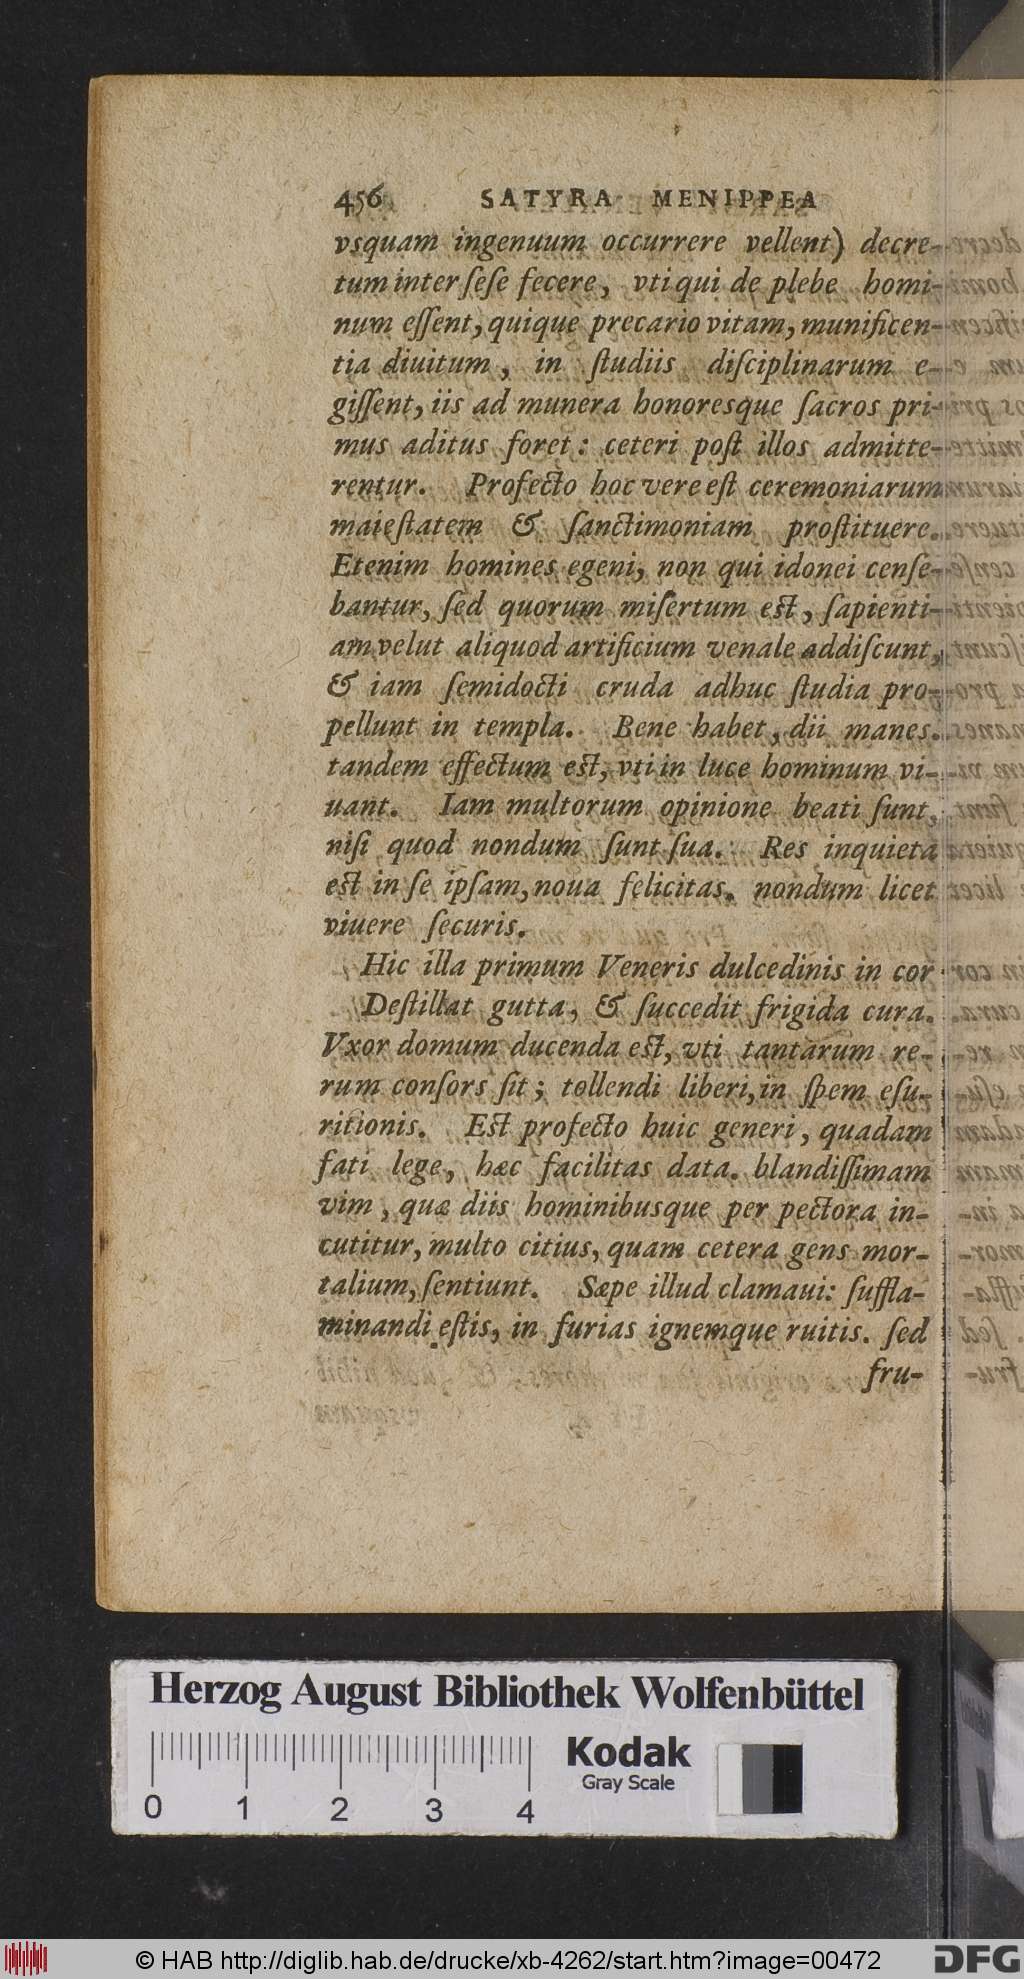 456 SATYRA MENIPPEA
vsquam ingenuum occurrere vellent) decre-
tum inter ſeſe fecere, vti qui de plebe homi-
num eſſent, quique precario vitam, munificen-
tia diuitum, in ſtudiis diſciplinarum e-
giſſent, iis ad munera honoresque ſacros pri-
mus aditus foret: ceteri poſt illos admitte-
rentur. Profecto hoc vere eſt ceremoniarum
maieſtatem & ſanctimoniam proſtituere.
Etenim homines egeni, non qui idonei cenſe-
bantur, ſed quorum miſertum eſt, ſapienti-
am velut aliquod artificium venale addiſcunt,
& iam ſemidocti cruda adhuc ſtudia pro-
pellunt in templa. Bene habet, dii manes.
tandem effectum eſt, vti in luce hominum vi-
uant. Iam multorum opinione beati ſunt,
niſi quod nondum ſunt ſua. Res inquieta
eſt in ſe ipſam, noua felicitas. nondum licet
viuere ſecuris.
Hic illa primum Veneris dulcedinis in cor
Deſtillat gutta, & ſuccedit frigida cura.
Vxor domum ducenda eſt, vti tantarum re-
rum conſors ſit; tollendi liberi, in ſpem eſu-
ritionis. Eſt profecto huic generi, quadam
fati lege, hæc facilitas data. blandiſſimam
vim, quæ diis hominibusque per pectora in-
cutitur, multo citius, quam cetera gens mor-
talium, ſentiunt. Sæpe illud clamaui: ſuffla-
minandi eſtis, in furias ignemque ruitis. ſed
fru-
Herzog August Bibliothek Wolfenbüttel
Kodak
Gray Scale
0 1 2 3 4
© HAB http://diglib.hab.de/drucke/xb-4262/start.htm?image=00472
DFG